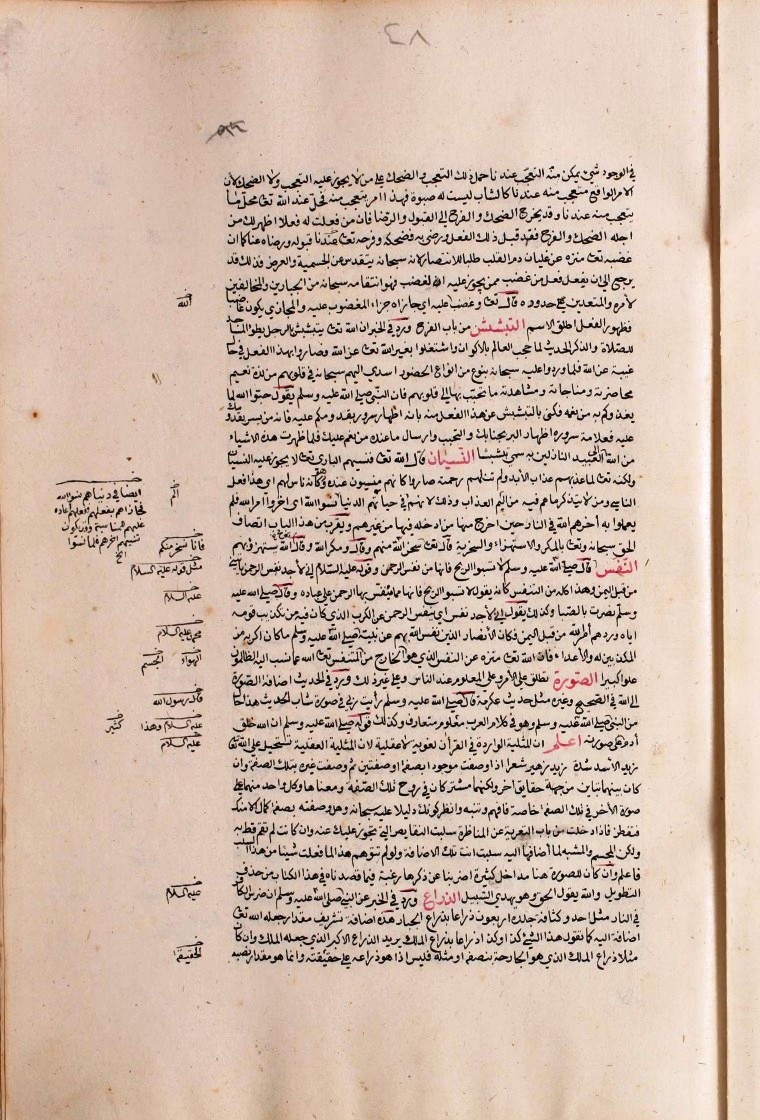 في الوجود شئ يمكن منه التعجب عندنا حمل ذلك التعجب والضحك على من لا يجوز عليه التعجب ولا الضحك لان
الامر الواقع متعجب منه عندنا كالشاب ليست له صبوة فهذا امر يتعجب منه فحل عند الله تعالى محل ما
يتعجب منه عندنا وقد يخرج الضحك والفرح الى القبول والرضا فان من فعلت له فعلا اظهر لك من
اجله الضحك والفرح فقد قبل ذلك الفعل ورضي به فضحكه وفرحه تعالى عندنا قبوله ورضاه عنا كما ان
غضبه تعالى منزه عن غليان دم القلب طلبا للانتصار لانه سبحانه يتقدس عن الجسمية والعرض فذلك قد
يرجع الى ان يفعل فعل من غضب ممن يجوز عليه الغضب فهو انتقامه سبحانه من الجبارين والمخالفين
لامره والمتعدين حدوده قال تعالى وغضب الله عليه اي جازاه جزاء المغضوب عليه والمجازي يكون غاضبا
فظهور الفعل اطلق الاسم التبشبش من باب الفرح ورد في الخبر ان الله تعالى يتبشبش للرجل يطو المساجد
للصلاة والذكر الحديث لما حجب العالم بالاكوان واشتغلوا بغير الله تعالى عن الله فصاروا بهذا الفعل في حال
غيبة عن الله فلما وردوا عليه سبحانه بنوع من انواع الحضور اسدى اليهم سبحانه في قلوبهم من لذة نعيم
محاضرته ومناجاته ومشاهدته ما تحبب بها الى قلوبهم فان النبي صلى الله عليه وسلم يقول حبوا الله لما
يغذوكم به من نعمه فكنى بالتبشبش عن هذا الفعل منه بانه اظهار سرور بقدومكم عليه فانه من يسر بقدومك
عليه فعلامة سروره اظهار البر بجنابك والتحبب وارسال ما عنده من نعم عليك فلما ظهرت هذه الاشياء
من الله الى العبيد النازلين به سمي تبشبشا النسيان قال الله تعالى فنسيهم الباري تعالى لا يجوز عليه النسيان
ولكنه تعالى لما عذبهم عذاب الابد ولم تنلهم رحمته صاروا كانهم منسيون عنده وهو كانه ناس لهم اي هذا فعل
الناسي ومن لا يتذكر ما هم فيه من اليم العذاب وذلك لانهم في حياتهم الدنيا نسوا الله اي اخروا امر الله فلم
يعملوا به اخرهم الله في النار حين اخرج منها من ادخله فيها من غيرهم ويقرب من هذا الباب اتصاف
الحق سبحانه وتعالى بالمكر والاستهزاء والسخرية قال تعالى سخر الله منهم وقال ومكر الله وقال الله يستهزئ بهم
النفس قال صلى الله عليه وسلم لا تسبوا الريح فانها من نفس الرحمن وقوله عليه السلام اني لاجد نفس الرحمن ياتيني
من قبل اليمن وهذا كله من التنفيس كانه يقول لا تسبوا الريح فانها مما ينفس بها الرحمن على عباده وقال صلى الله عليه
وسلم نصرت بالصبا وكذلك يقول اني لاجد نفس اي تنفيس الرحمن عن الكرب الذي كان فيه من تكذيب قومه
اياه وردهم امر الله من قبل اليمن فكان الانصار الذين نفس الله بهم عن نبيه صلى الله عليه وسلم ما كان اكربه من
المكذبين له والاعداء فان الله تعالى منزه عن النفس الذي هو الخارج من المتنفس تعالى الله عما نسب اليه الظالمون
علوا كبيرا الصورة تطلق على الامر وعلى المعلوم عند الناس وعلى غير ذلك ورد في الحديث اضافة الصورة
الى الله في الصحيح وغيره مثل حديث عكرمة قال صلى الله عليه وسلم رايت ربي في صورة شاب الحديث هذا حال
من النبي صلى الله عليه وسلم وهو في كلام العرب معلوم متعارف وكذلك قوله صلى الله عليه وسلم ان الله خلق
آدم على صورته اعلم ان المثلية الواردة في القرآن لغوية لا عقلية لان المثلية العقلية تستحيل على الله تعالى
زيد الاسد شدة زيد زهير شعرا اذا وصفت موجودا بصفة او صفتين ثم وصفت غيره بتلك الصفة وان
كان بينهما تباين من جهة حقايق اخر ولكنهما مشتركان في روح تلك الصفة ومعناها وكل واحد منهما على
صورة الآخر في تلك الصفة خاصة فافهم وتنبه وانظر كونك دليلا عليه سبحانه وهل وصفته بصفة كمال الا منك
فتفطن فاذا دخلت من باب التعرية عن المناظرة سلبت النقايص التي تجوز عليك عنه وان كانت لم تقم قط به
ولكن المجسم والمشبه لما اضافها اليه سلبت انت تلك الاضافة ولو لم تتوهم هذا لما فعلت شيئا من هذا السلب
فاعلم وان كان للصورة هنا مداخل كثيرة اضربنا عن ذكرها رغبة فيما قصدناه في هذا الكتاب من حذف
التطويل والله يقول الحق وهو يهدي السبيل الذراع ورد في الخبر عن النبي صلى الله عليه وسلم ان ضرس الكافر
في النار مثل احد وكثافة جلده اربعون ذراعا بذراع الجبار هذه اضافة تشريف مقدار جعله الله تعالى
اضافة اليه كما تقول هذا الشئ كذا وكذا ذراعا بذراع الملك يريد الذراع الاكبر الذي جعله الملك وان كان
مثلا ذراع الملك الذي هو الجارحة بنصفه او مثله فليس اذا هو ذراعه على حقيقته وانما هو مقدار نصبه
الله
فانا نسخر منكم
مثل قوله عليه السلام
عليه السلام
محمد عليه السلام
الهواء
الجسم
قال رسول الله
عليه السلام وهذا
كثير
عليه السلام
عليه السلام
الحقيقة